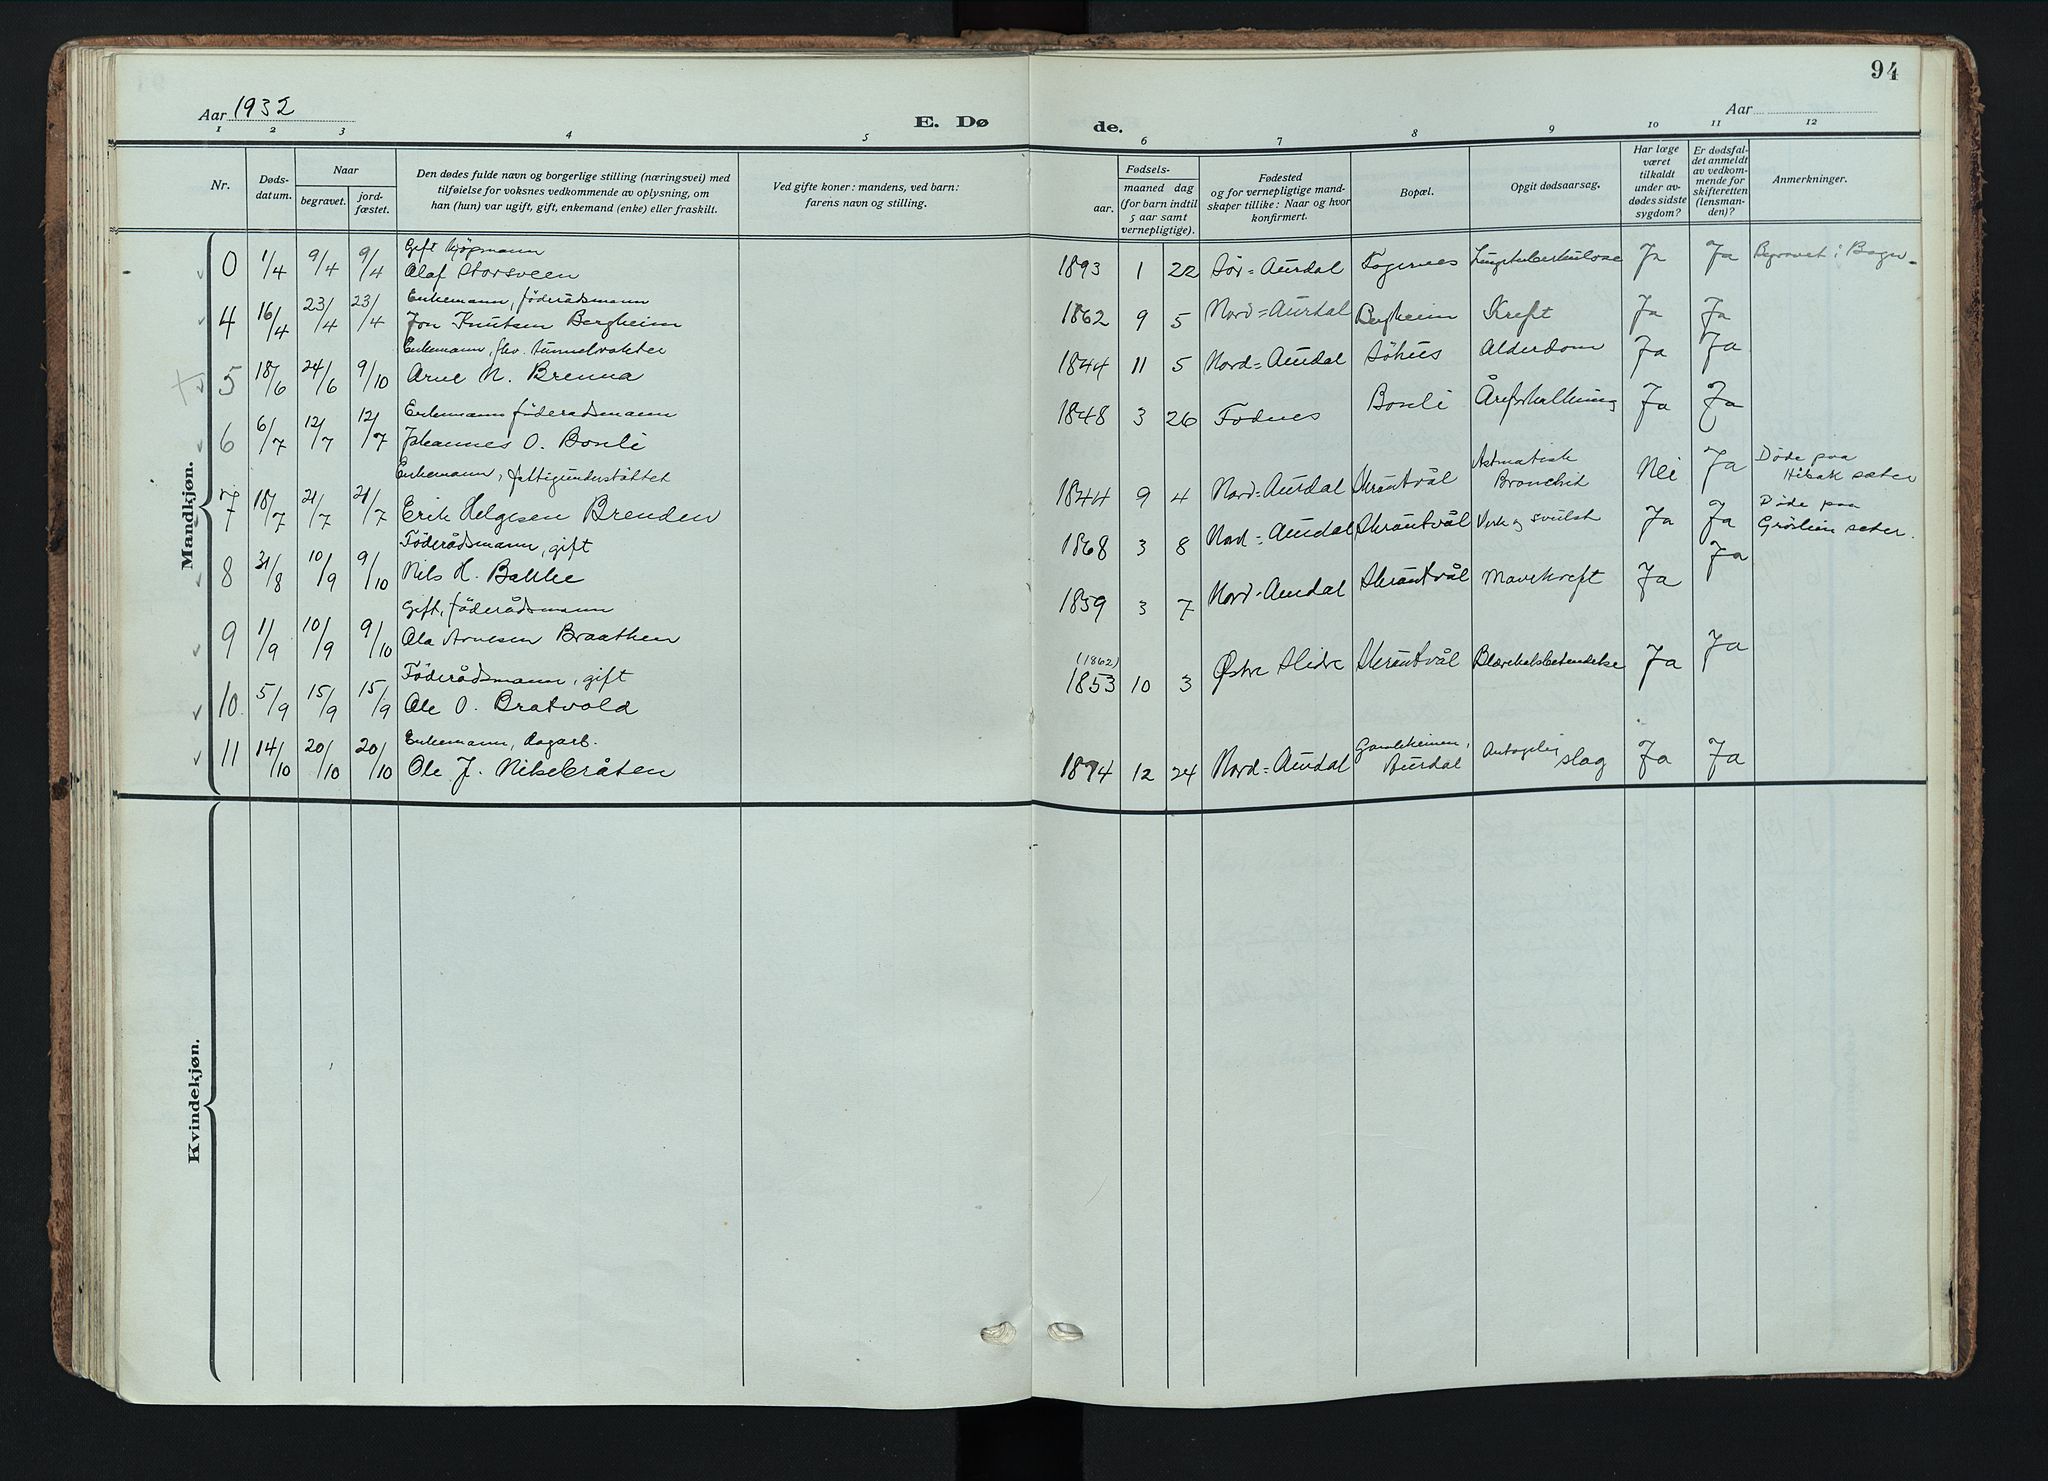 94
Aar 1932
E. Dø de.
Aar
1 2 3 4 5 6 7 8 9 10 11 12
Nr.
Døds-
datum.
Naar
begravet.
jord-
fæstet.
Den dødes fulde navn og borgerlige stilling (næringsvei) med
tilføielse for voksnes vedkommende av oplysning, om
han (hun) var ugift, gift, enkemand (enke) eller fraskilt.
Ved gifte koner: mandens, ved barn:
farens navn og stilling.
Fødsels-
aar.
maaned dag
(for barn indtil
5 aar samt
vernepligtige).
Fødested
og for vernepligtige mand-
skaper tillike: Naar og hvor
konfirmert.
Bopæl.
Opgit dødsaarsag.
Har læge
været
tilkaldt
under av-
dødes sidste
sygdom?
Er dødsfal-
det anmeldt
av vedkom-
mende for
skifteretten
(lensman-
den)?
Anmerkninger.
Mandkjøn.
Gift Kjøpmann
0 1/4 9/4 9/4 Olaf Storsveen 1893 1 22 Sør=Aurdal Fagernes Lungetuberkulose Ja Ja Begravet i Bagn.
Enkemann, föderådsmann
4 16/4 23/4 23/4 Jon Knutsen Bergheim 1862 9 5 Nord=Aurdal Bergheim Kreft Ja Ja
Enkemann, fhv. tunnelvakter
5 18/6 24/6 9/10 Arne N. Brenna 1844 11 5 Nord=Aurdal Söhus Alderdom Ja Ja
Enkemann föderadsmann
6 6/7 12/7 12/7 Johannes O. Bonli 1848 3 26 Fodnes Bonli Åreforkalkning Ja Ja
Enkemann, fattigunderstöttet
7 18/7 21/7 21/7 Erik Helgesen Brenden 1844 9 4 Nord=Aurdal Skrautvål Astmatisk
Bronchit Nei Ja Døde paa
sæter
Föderådsmann, gift
8 31/8 10/9 9/10 Nils H. Bakke 1868 3 8 Nord=Aurdal Skrautvål Verk og svulst Ja Ja Døde paa
Gröslien sæter.
Gift, föderådsmann
9 1/9 10/9 9/10 Ola Arnesen Braathen 1859 3 7 Nord=Aurdal Skrautvål Mavekreft Ja Ja
Föderådsmann, gift
10 5/9 15/9 15/9 Ole O. Bratvold (1862)
1853 10 3 Østre Slidre Skrautvål Blærehalsbetendelse Ja Ja
Enkemann, dagarb.
11 14/10 20/10 20/10 Ole J. Nikebråten 1874 12 24 Nord=Aurdal Gamleheimen,
Aurdal Antagelig slag Ja Ja
Kvindekjøn.